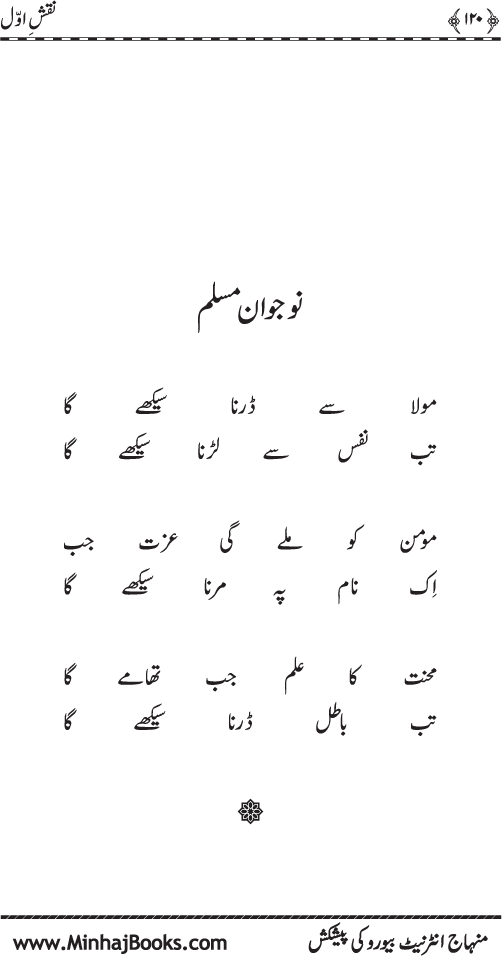 ﴿۱۲۰﴾ نقشِ اوّل
نوجوان مسلم
مولا سے ڈرنا سیکھے گا
تب نفس سے لڑنا سیکھے گا
مومن کو ملے گی عزت جب
اِک نام پہ مرنا سیکھے گا
محنت کا علم جب تھامے گا
تب باطل ڈرنا سیکھے گا
منہاج انٹرنیٹ بیورو کی پیشکش www.MinhajBooks.com